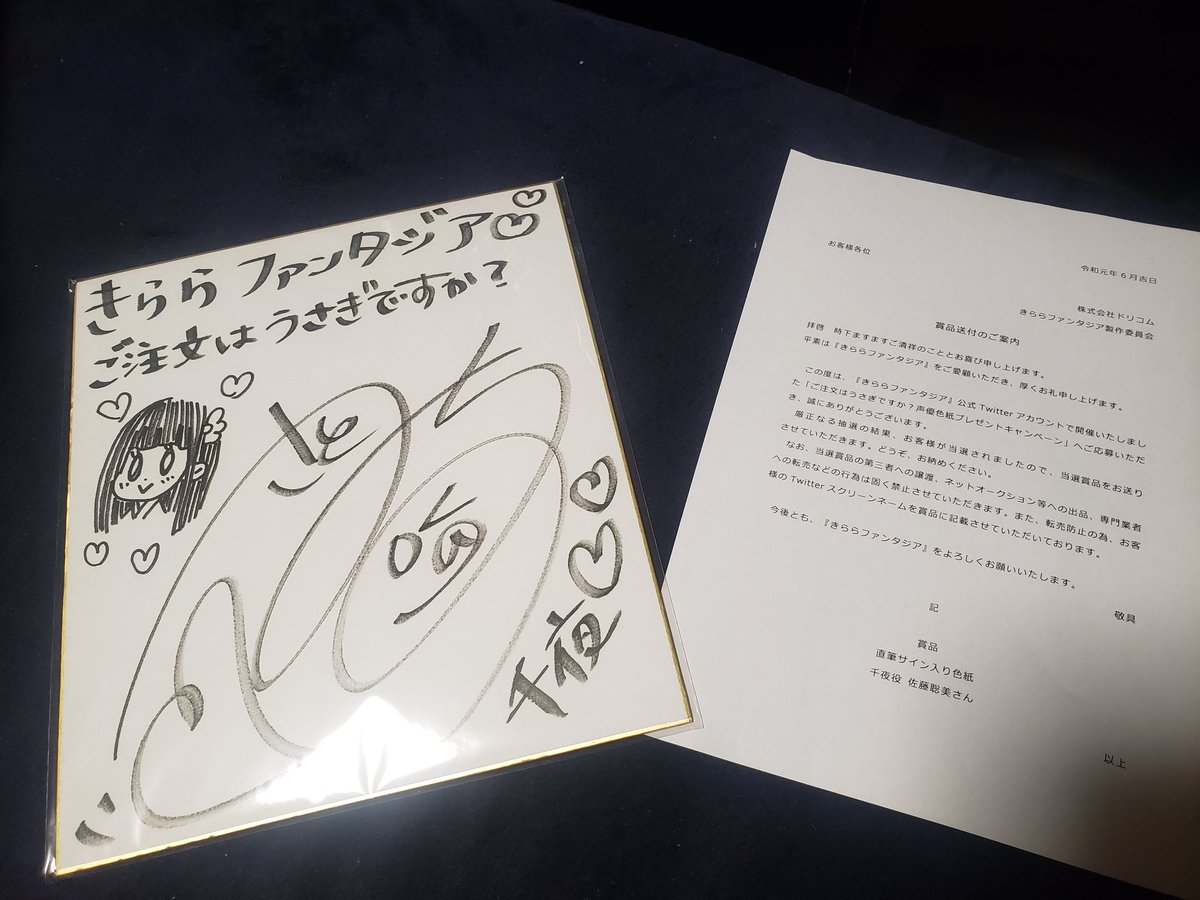 きらら ファンタジア
ご注文はうさぎですか?
千夜
お客様各位
令和元年6月吉日
株式会社ドリコム
きららファンタジア製作委員会
賞品送付のご案内
拝啓 時下ますますご清祥のこととお喜び申し上げます。
平素は『きららファンタジア』をご愛顧いただき、厚くお礼申し上げます。
この度は、『きららファンタジア』公式 Twitter アカウントで開催いたしまし
た「ご注文はうさぎですか?声優色紙プレゼントキャンペーン」へご応募いただ
き、誠にありがとうございます。
厳正なる抽選の結果、お客様が当選されましたので、当選賞品をお送り
させていただきます。どうぞ、お納めください。
なお、当選賞品の第三者への譲渡、ネットオークション等への出品、専門業者
への転売などの行為は固く禁止させていただきます。また、転売防止の為、お客
様の Twitter スクリーンネームを賞品に記載させていただいております。
今後とも、『きららファンタジア』をよろしくお願いいたします。
敬具
記
賞品
直筆サイン入り色紙
千夜役 佐藤聡美さん
以上